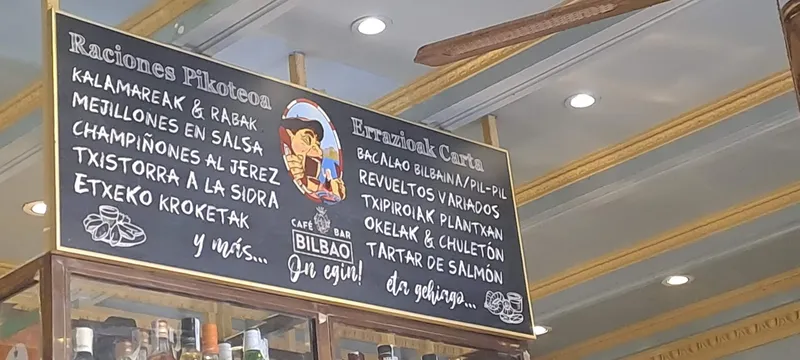 Raciones Pikoteoa
KALAMAREAK & RABAK
MEJILLONES EN SALSA
CHAMPIÑONES AL JEREZ
TXISTORRA A LA SIDRA
ETXEKO KROKETAK
y más...
CAFÉ BAR
BILBAO
On egin!
Errazioak Carta
BACALAO BILBAINA/PIL-PIL
REVUELTOS VARIADOS
TXIPIROIAK PLANTXAN
OKELAK & CHULETÓN
TARTAR DE SALMÓN
eta gehiago...